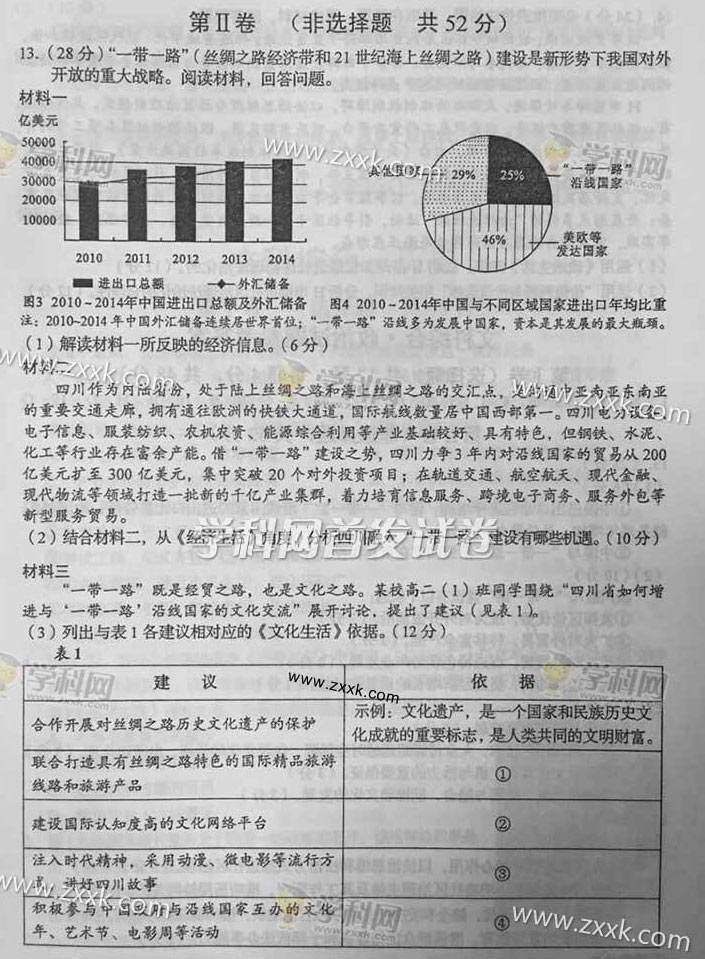 第Ⅱ卷 （非选择题 共52分）
13.（28分）“一带一路”（丝绸之路经济带和21世纪海上丝绸之路）建设是新形势下我国对外
开放的重大战略。阅读材料，回答问题。
材料一
亿美元
50000
40000
30000
20000
10000
2010 2011 2012 2013 2014
进出口总额 外汇储备
29% 25%
46%
“一带一路”
沿线国家
美欧等
发达国家
图3 2010~2014年中国进出口总额及外汇储备 图4 2010~2014年中国与不同区域国家进出口年均比重
注：2010~2014年中国外汇储备连续居世界首位；“一带一路”沿线多为发展中国家，资本是其发展的最大瓶颈。
（1）解读材料一所反映的经济信息。（6分）
材料二
四川作为内陆省份，处于陆上丝绸之路和海上丝绸之路的交汇点，是沟通中亚南亚东南亚
的重要交通走廊，拥有通往欧洲的快铁大通道，国际航线数量居中国西部第一。四川电力设备、
电子信息、服装纺织、农机农资、能源综合利用等产业基础较好、具有特色，但钢铁、水泥、
化工等行业存在富余产能。借“一带一路”建设之势，四川力争3年内对沿线国家的贸易从200
亿美元扩至300亿美元，集中突破20个对外投资项目；在轨道交通、航空航天、现代金融、
现代物流等领域打造一批新的千亿产业集群，着力培育信息服务、跨境电子商务、服务外包等
新型服务贸易。
（2）结合材料二，从《经济生活》角度，分析四川融入“一带一路”建设有哪些机遇。（10分）
材料三
“一带一路”既是经贸之路，也是文化之路。某校高二（1）班同学围绕“四川省如何增
进与‘一带一路’沿线国家的文化交流”展开讨论，提出了建议（见表1）。
（3）列出与表1各建议相对应的《文化生活》依据。（12分）
表1
建 议 依 据
合作开展对丝绸之路历史文化遗产的保护
示例：文化遗产，是一个国家和民族历史文
化成就的重要标志，是人类共同的文明财富。
联合打造具有丝绸之路特色的国际精品旅游
线路和旅游产品
①
建设国际认知度高的文化网络平台
②
注入时代精神，采用动漫、微电影等流行方
式，讲好四川故事
③
积极参与中国政府与沿线国家互办的文化
年、艺术节、电影周等活动
④
学科网
www.zxxk.com
学科网
www.zxxk.com
www.zxxk.com
学科网首发试卷
学科网
www.zxxk.com
学科网
www.zxxk.com
www.zxxk.com